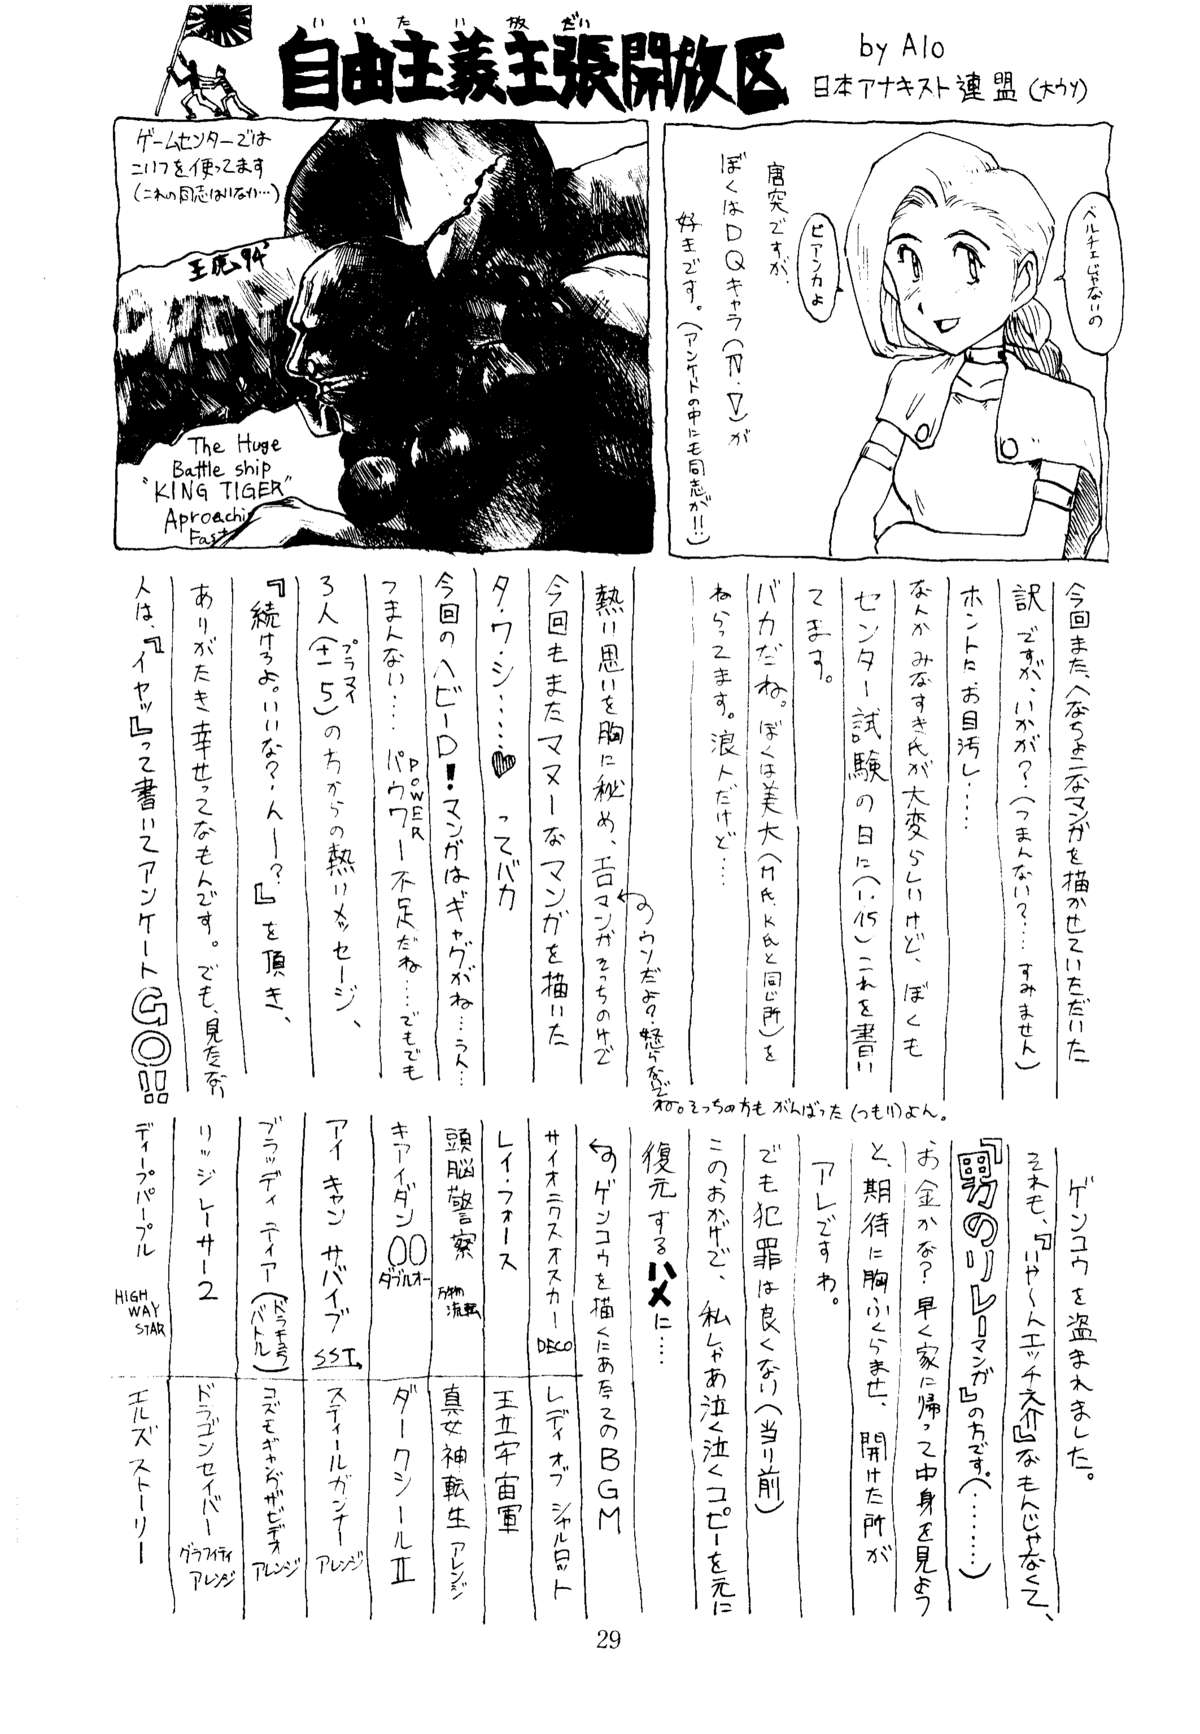 いいたい放だい
自由主義主張開放区
by Alo
日本アナキスト連盟(大ウソ)
ベルチェじゃないの
ビアンカよ
唐突ですが、
ぼくはDQキャラ(Ⅳ・Ⅴ)が
好きです。(アンケートの中にも同志が!!)
ゲームセンターでは
こいつを使ってます
(これの同志はいない…)
王虎94'
The Huge
Battle ship
"KING TIGER"
Aproachi
Fast
今回また、へなちょこなマンガを描かせていただいた
訳ですが、いかが?(つまんない?…すみません)
ホントに、お目汚し……
なんか みなすき氏が大変らしいけど、ぼくも
センター試験の日に(1.15)これを書い
てます。
バカだね。ぼくは美大(M氏、K氏と同じ所)を
ねらってます。浪人だけど……
熱い思いを胸に秘め、エロマンガそっちのけで
のウソだよ?怒らないで
ね。そっちの方も がんばった(つもり)よん。
今回もまたママヌーなマンガを描いた
タ・ワ・シ……♥ってバカ
今回のヘビーD!マンガはギャグがね…うん…
つまんない…… パウワー不足だね……でもでも
POWER
3人(±5)の方からの熱いメッセージ、
プラマイ
『続けろよ。いいな?んー?』を頂き、
ありがたき幸せってなもんです。でも、見たくない
人は、『イヤッ』って書いてアンケートGO!!
ゲンコウを盗まれました。
それも、『いや〜んエッチ介』なもんじゃなくて、
『男のリレーマンガ』の方です。(………)
お金かな?早く家に帰って中身を見よう
と、期待に胸ふくらませ、開けた所が
アレですわ。
でも犯罪は良くない(当り前)
この、おかげで、私しゃあ泣く泣くコピーを元に
復元するハメに……
のゲンコウを描くにあたってのBGM
サイオニクスオスカー DECO
レイ・フォース
頭脳警察 万物流転
キアイダン00 ダブルオー
アイ キャン サバイブ SST
ブラッディ ティアー(ドラキュラバトル)
リッジレーサー2
ディープパープル HIGH WAY STAR
レディ オブ シャルロット
王立宇宙軍
真女神転生 アレンジ
ダークシールⅡ
スティールガンナー アレンジ
コズモギャングザビデオ アレンジ
ドラゴンセイバー グラフィティ アレンジ
エルズストーリー
29